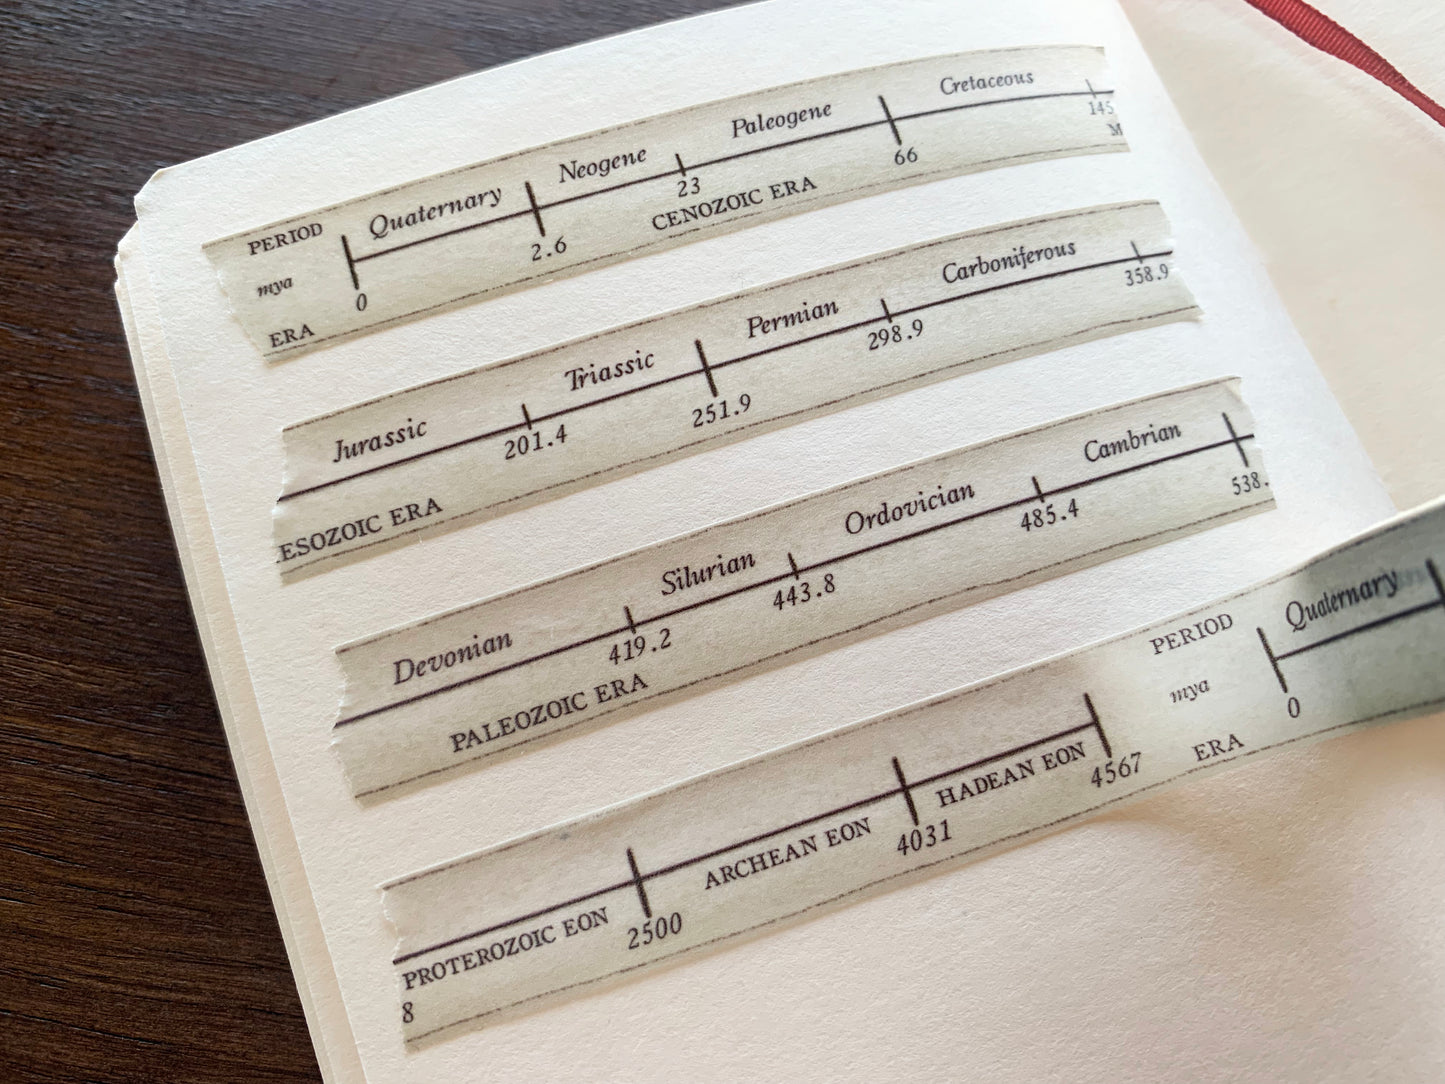 PERIOD Quaternary Neogene Paleogene Cretaceous
mya 0 2.6 23 66 145
ERA CENOZOIC ERA M
Jurassic Triassic Permian Carboniferous
201.4 251.9 298.9 358.9
ESOZOIC ERA
Devonian Silurian Ordovician Cambrian
419.2 443.8 485.4 538.
PALEOZOIC ERA
PERIOD Quaternary
mya 0
ERA
PROTEROZOIC EON ARCHEAN EON HADEAN EON
8 2500 4031 4567